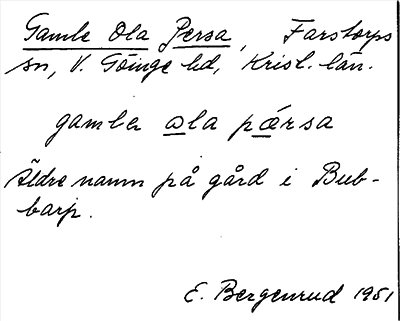 Gamle Ola Persa, Farstorps
sn, V. Göinge hd, Krist. län.
gamlɐ ɷla pǽrsa
Äldre namn på gård i Bub-
barp.
E. Bergenrud 1951